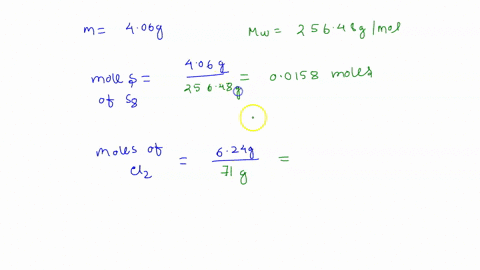 m= 4.06g Mw= 256.48g/mol
moles of S8 = 4.06g / 256.48g = 0.0158 moles
moles of Cl2 = 6.24g / 71g =